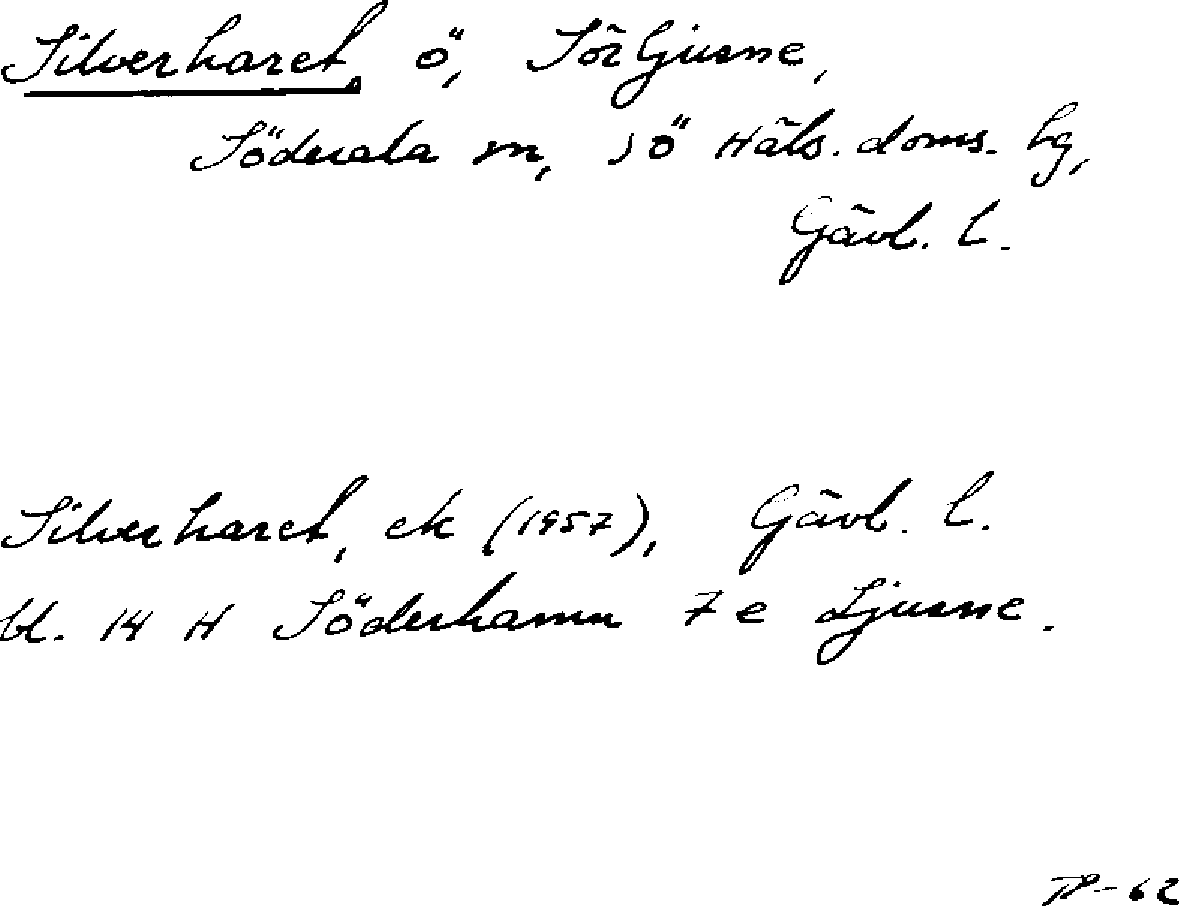 Silverharet, ö, Sörljusne,
Söderala sn, sö Häls. doms. hg,
Gävl. l.
Silverharet, ek (1957), Gävl. l.
bl. 14 H Söderhamn 7 e Ljusne.
-62